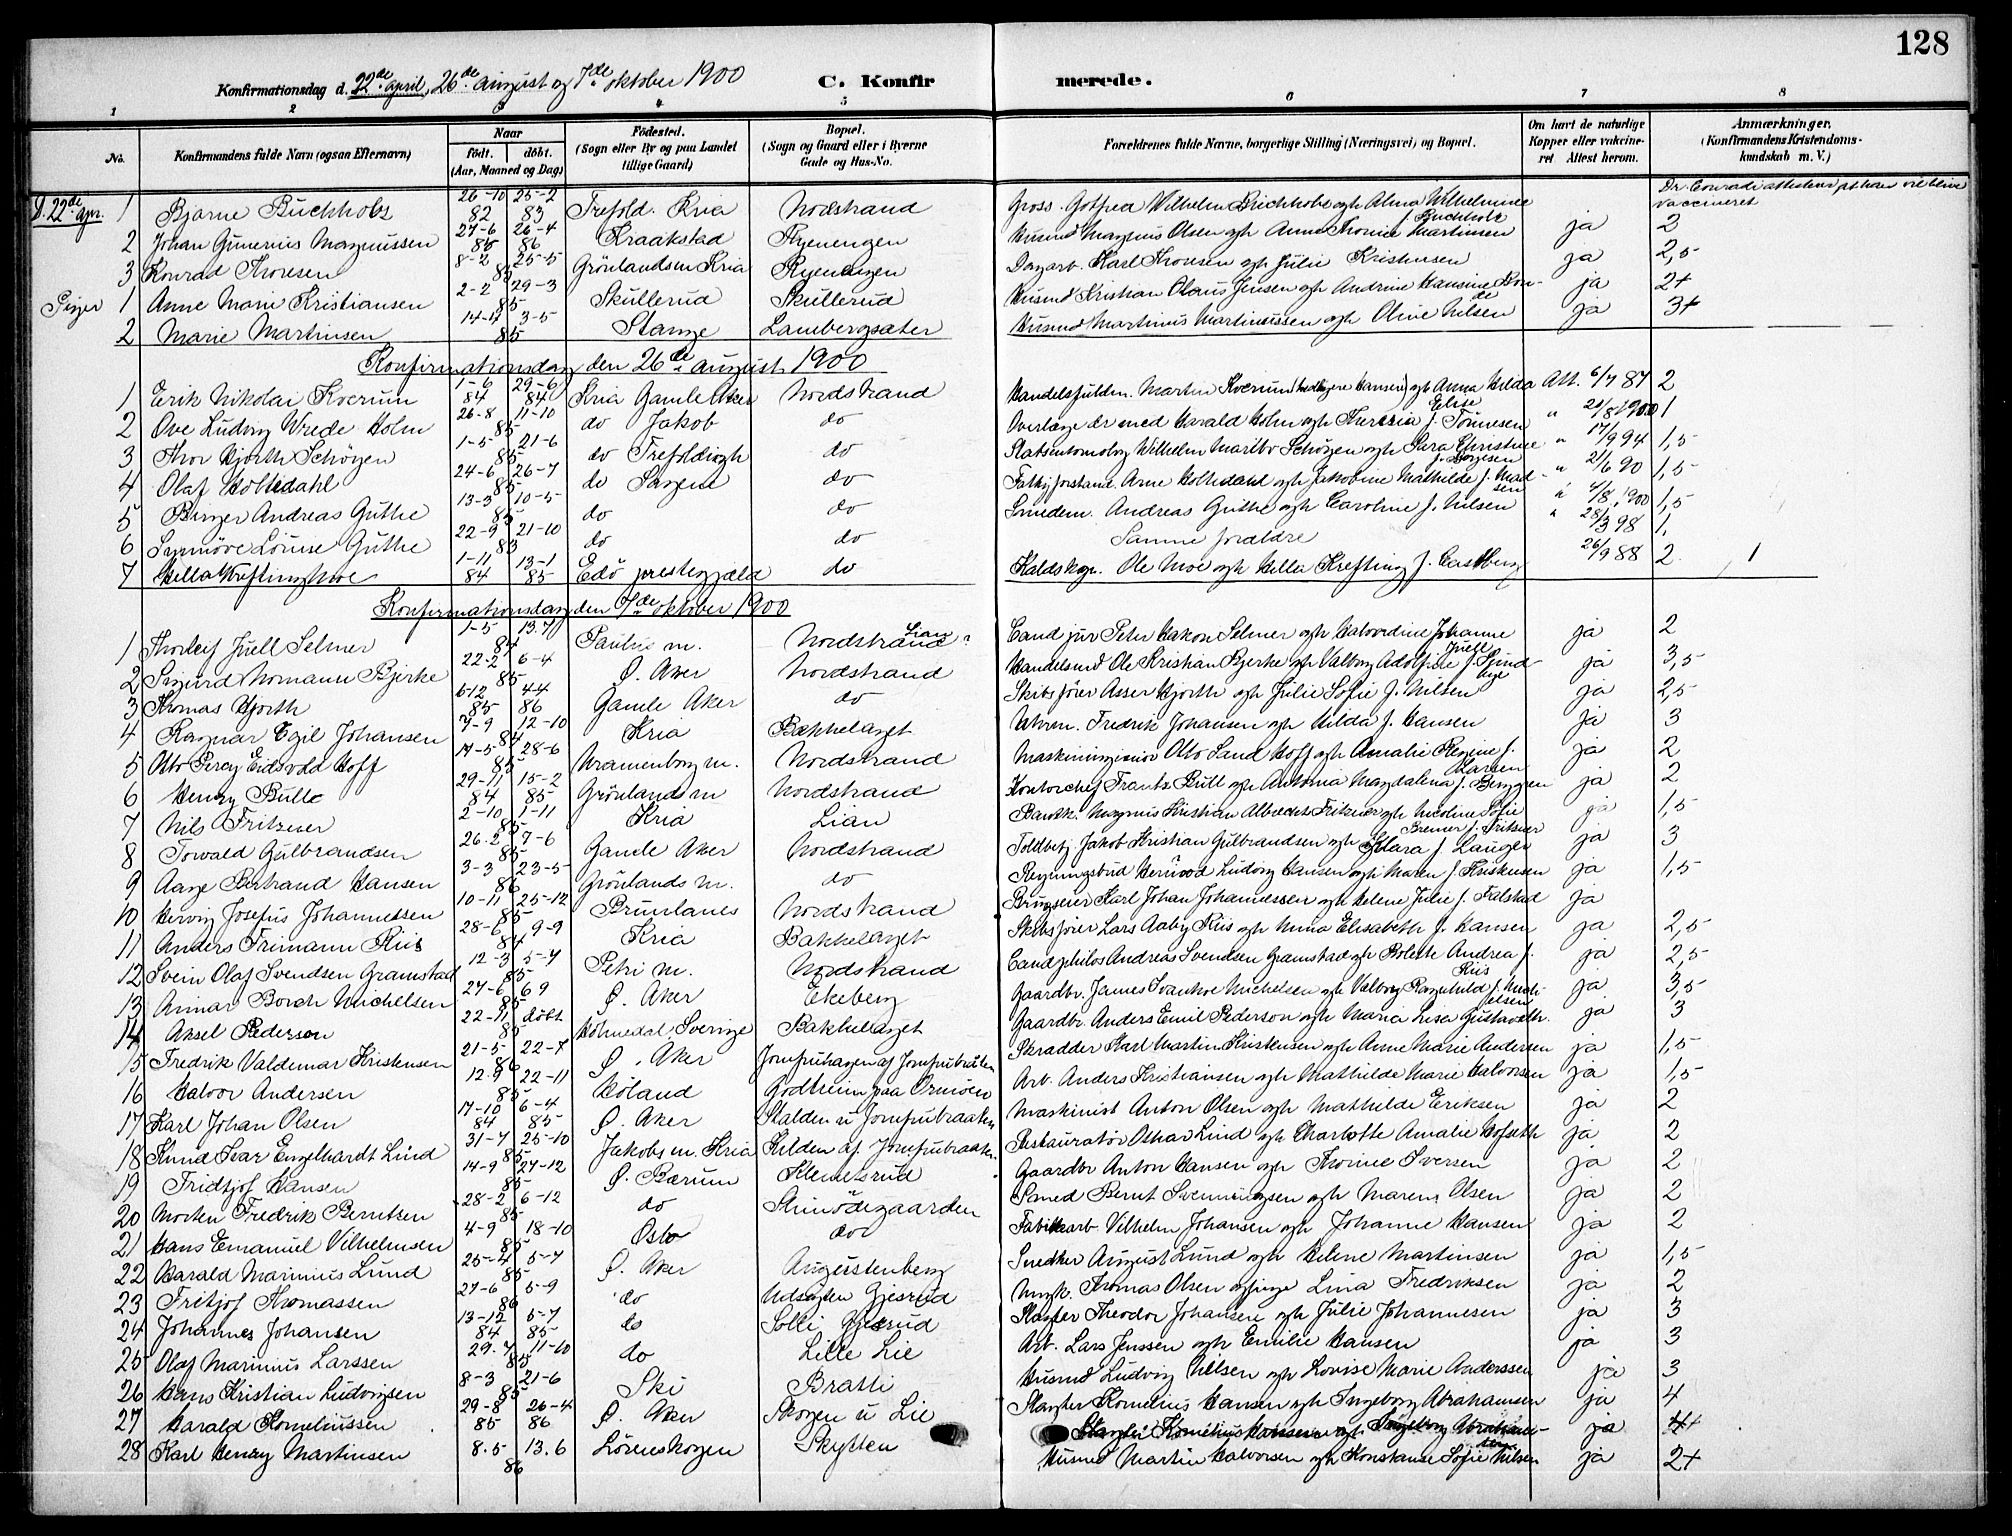 128
Konfirmationsdag d. 22de april, 26de august og 7de oktober 1900 C. Konfirmerede.
1 2 3 4 5 6 7 8
No. Konfirmandens fulde Navn (ogsaa Efternavn) Naar født. døbt. (Aar, Maaned og Dag) Fødested. (Sogn eller By og paa Landet tillige Gaard) Bopæl. (Sogn og Gaard eller i Byerne Gade og Hus-No. Forældrenes fulde Navne, borgerlige Stilling (Næringsvei) og Bopæl. Om havt de naturlige Kopper eller vakcineret Attest herom. Anmærkninger. (Konfirmandens Kristendomskundskab m. V.)
D. 22de apr. 1 Bjarne Buchholz 26-10 82 25-2 83 Trefold. Kria Nordstrand Gross. Gotfred Wilhelm Buchholz ogh Alma Wilhelmine Buchholz vaccineret
2 Johan Gunerius Magnussen 27-6 85 26-4 86 Kraakstad Ryenengen Husmd Magnus Olsen ogh Anne Thonie Martinsen ja 2
3 Konrad Thoresen 8-2 25-5 85 Grönlandsm Kria Ryenengen Dagarb. Karl Thoresen ogh Julie Kristensen ja 2,5
Piger 1 Anne Marie Kristiansen 2-2 29-3 85 Skullerud Skullerud Husmd Kristian Olaus Jensen ogh Andrine Hansine ja 2+
2 Marie Martinsen 14-4 3-5 85 Stange Lambergsæter Husmd Martinus Martinussen ogh Oline Nilsen ja 3+
Konfirmationsdag den 26de august 1900
1 Erik Nikolai Kverum 1-6 84 29-6 84 Kria Gamle Aker Nordstrand Handelsfuldm. Martin Kverum (tidligere Hansen) ogh Anna Hilda Elise Att. 6/7 87 2
2 Ove Ludvig Wrede Holm 26-8 11-10 85 do Jakob do Overlæge dr med Harald Holm ogh Theresia f. Tönnesen " 21/8 1900 1
3 Thor Hjorth Schöyen 1-5 21-6 85 do Trefoldigh do Statsentomolog Wilhelm Maribo Schöyen ogh Sara Christine " 17/9 94 1,5
4 Olaf Holtedahl 24-6 26-7 85 do Sagene do Fattigforstand. Arne Holtedahl ogh Jakobine Mathilde f. Madsen " 21/6 90 1,5
5 Birger Andreas Guthe 13-3 10-5 85 do do Smedem. Andreas Guthe ogh Caroline f. Nilsen " 4/8 1900 1,5
6 Synnöve Louise Guthe 22-9 21-10 83 do do Samme foraldre " 28/3 98 1,
7 Hella Krefting Moe 1-11 84 13-1 85 Edö prestegjæld do Kaldskap. Ole Moe ogh Hella Krefting f. Castberg 26/9 88 2
Konfirmationsdag den 7de oktober 1900
1 Thorleif Juell Selmer 1-5 13.7 84 Paulus m. Nordstrand Lian Cand jur Peter Hakon Selmer ogh Halvordine Johanne Juell ja 2
2 Sigurd Normann Bjerke 22-2 6-4 85 Ø. Aker Nordstrand Handelsmd Ole Kristian Bjerke ogh Valborg Adolfine f. ja 3,5
3 Thomas Hjorth 6-12 85 4-4 86 Gamle Aker do Skibsförer Asser Hjorth ogh Julie Sofie f. Nilsen ja 2,5
4 Ragnar Egil Johansen 7-9 12-10 84 Kria Bækkelaget Urm. Fredrik Johansen ogh Hilda f. Hansen ja 3
5 Otto Percy Eidsvold Hoff 17-5 28-6 85 Uranienborg m. Nordstrand Maskiningeniör Otto Sand Hoff ogh Amalie Regine f. Larsen ja 2
6 Henry Bull 29-11 84 15-2 85 Grönlands m Nordstrand Kontorchef Frants Bull ogh Antonia Magdalena f. Berggren ja 2
7 Nils Fritzner 2-10 1-11 85 Kria Lian Bankk. Magnus Kristian Albrecht Fritzner ogh Nicoline Sofie Bremer f. Fritzner ja 1,5
8 Torvald Gulbrandsen 26.2 7-6 85 Gamle Aker Nordstrand Toldbetj Jakob Kristian Gulbrandsen ogh Klara f Lange ja 3
9 Aage Bertrand Hansen 3-3 23-5 86 Grönlands m. do Regningsbud Ludvig Hansen ogh Maren f. Kristensen ja 1,5
10 Herving Josefus Johannessen 10-11 25-12 85 Brunlanes Nordstrand Brugseier Karl Johan Johannessen ogh Helene Julie f. Falstad ja
11 Anders Frimann Riis 28-6 9-9 84 Kria Bækkelaget Skibsförer Lars Aaby Riis ogh Anna Elisabeth f. Hansen ja 2,5
12 Svein Olaf Svendsen Gramstad 12-3 5-7 85 Petri m. Nordstrand Cand philos Andreas Svendsen Gramstad ogh Bolette Andrea f. Riis ja 2,5
13 Annar Borch Michelsen 27-6 6 9 85 Ø. Aker Ekeberg Gaardbr. James Ivanhoe Michelsen ogh Valborg Ragnhild f. Michelsen ja 3,5
14 Aksel Pederson 22-11 döbt 85 Holmedal, Sverige Bækkelaget Gaardbr. Anders Emil Pederson ogh Maria Lisa Gustavsdtr. ja 3
15 Fredrik Valdemar Kristensen 21-5 22-7 86 Ø. Aker Jomfruhagen af Jomfrubråten Skrædder Karl Martin Kristensen ogh Anne Marie Andersen ja 1,5
16 Halvor Andersen 12-9 22-11 85 Höland Godtheim paa Ormöen Arb. Anders Kristiansen ogh Mathilde Marie Halvorsen ja 1,5
17 Karl Johan Olsen 17-10 84 6-4 85 Ø. Aker Stalden u Jomfrubraaten Maskinist Anton Olsen ogh Mathilde Eriksen ja 2
18 Knud Ivar Engelhardt Lind 31-7 25-10 85 Jakobs m. Kria Kilden af Jomfrubraaten Restauratör Othar Lind ogh Charlotte Amalie Hofseth ja 2
19 Fridtjof Hansen 14-9 27-12 85 Ø. Bærum Klemetsrud Gaardbr Anton Hansen ogh Thorine Iversen ja 2
20 Morten Fredrik Berntsen 28-2 6-12 85 do Stuvödegaarden Smed Bernt Svenningsen ogh Maren Olsen ja 2
21 Hans Emanuel Vilhelmsen 4-9 18-10 85 Oslo do Fabrikarb Vilhelm Johansen ogh Johanne Hansen ja 2
22 Harald Marinius Lund 25-4 5-7 85 Ø. Aker Augustenberg Snedker August Lund ogh Helene Martinsen ja 1,5
23 Fritjof Thomassen 27-6 5-9 86 do Udsigten Gjesrud Ungk. Thomas Olsen og pige Lina Fredriksen ja 2
24 Johannes Johansen 13-12 84 5-7 85 do Solli Gjesrud Slagter Theodor Johansen ogh Julie Johannesen ja 3
25 Olaf Marinius Larssen 29.7 11-10 85 do Lille Lie Arb. Lars Jenssen ogh Emilie Hansen ja 3
26 Hans Kristian Ludvigsen 8-3 21-6 85 Ski Bratli Husmd Ludvig Nilsen ogh Lovise Marie Anderssen ja 3
27 Harald Korneliussen 29-8 85 26-4 86 Ø. Aker Skogen u Lie Slagter Kornelius Hansen ogh Ingeborg Abrahamsen ja 4
Slagter Kornelius Hansen ogh Ingeborg Abrahamsen ja 4+
28 Karl Henry Martinsen 8.5 13.6 86 Lörenskogen Skytten Husmd Martin Halvorsen ogh Konstanse Sofie Nilsen ja 2+